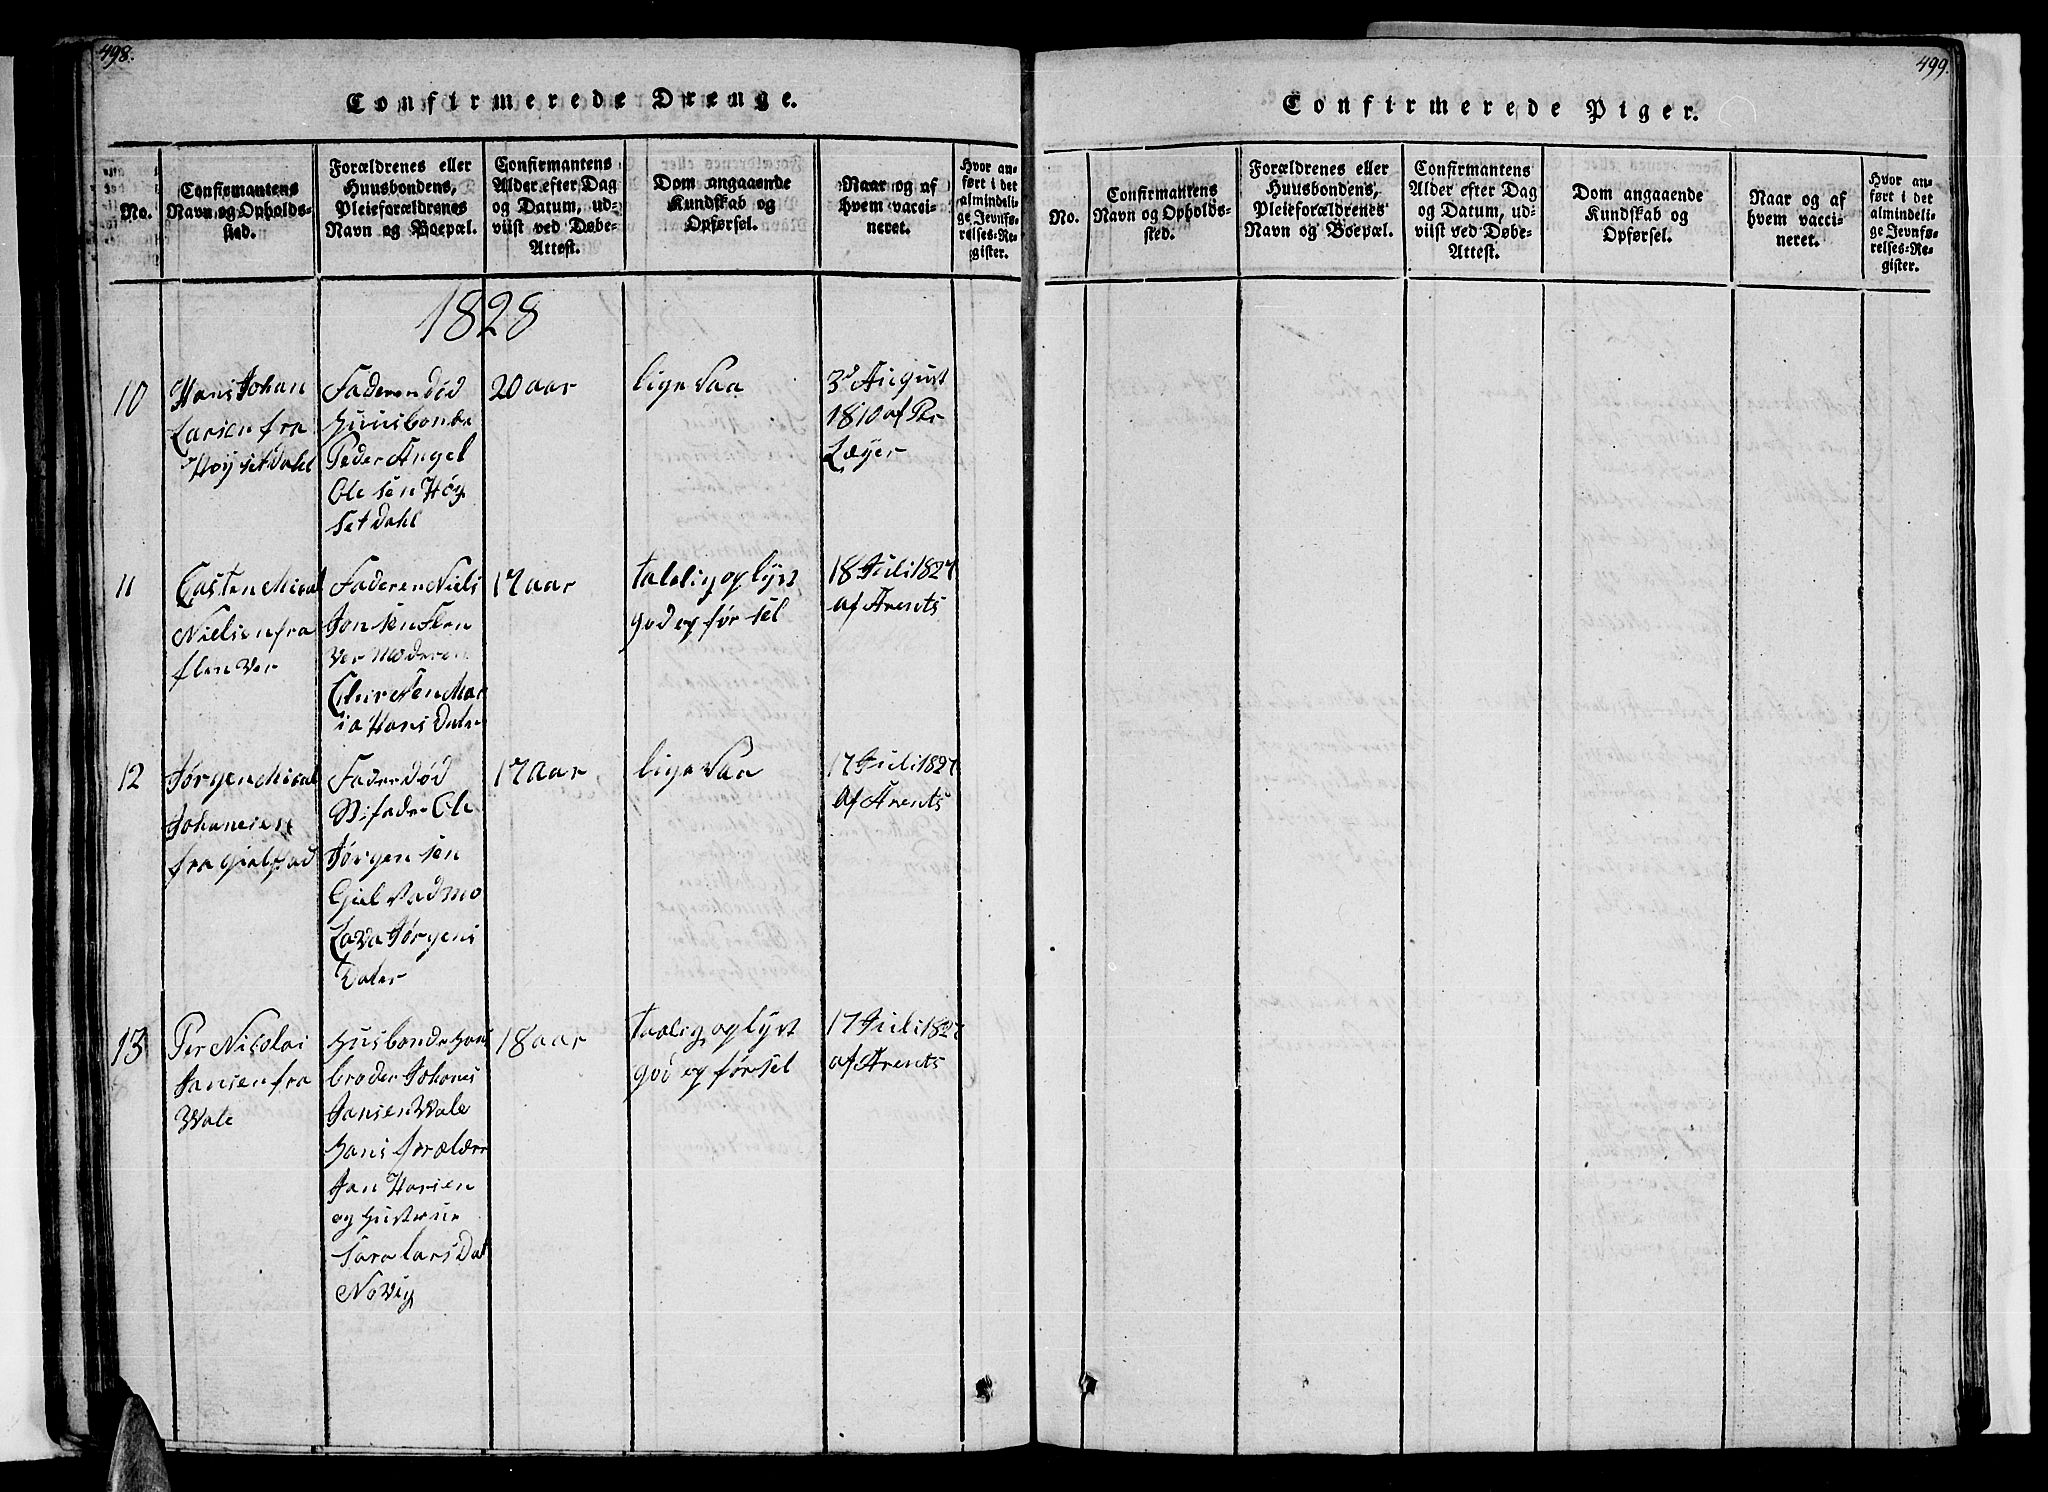 498.
Confirmerede Drenge.
No.
Confirmantens
Navn og Opholds-
sted.
Forældrenes eller
Huusbondens,
Pleieforældrenes
Navn og Boepæl.
Confirmantens
Alder efter Dag
og Datum, ud-
viist ved Døbe-
Attest.
Dom angaaende
Kundskab og
Opførsel.
Naar og af
hvem vacci-
neret.
Hvor an-
ført i det
almindeli-
ge Jevnfø-
relses-Re-
gister.
1828
10
Hans Johan
Larsen fra
Høysetdahl
Faderen død
Huusbonde
Peder Angel
Olesen Høy
setdahl
20 aar
lige saa
3d August
1810 af Per
Læyer
11
Casten Mical
Nielsen fra
flenver
Faderen Niels
Jonsen Flen
ver moderen
Chirsten Mar
ia Hans Dater
17 aar
talelig oplyst
god opførsel
18 Juli 1827
af Arents
12
Jørgen Mical
Johansen
fra Gielstad
Fader død
Stifader Ole
Jørgensen
Gielstad mo
Lava Jørgens
Dater
17 aar
lige saa
17 Juli 1827
af Arents
13
Per Nicolai
Jansen fra
Wale
Husbonde Hans
broder Johanes
Jansen Wale
Hans forælder
Jan Hansen
og Hustrue
Sara Lars Dat
Novig
18 aar
taalig oplyst
god opførsel
17 Juli 1827
af Arents
499.
Confirmerede Piger.
No.
Confirmantens
Navn og Opholds-
sted.
Forældrenes eller
Huusbondens,
Pleieforældrenes
Navn og Boepæl.
Confirmantens
Alder efter Dag
og Datum, ud-
viist ved Døbe-
Attest.
Dom angaaende
Kundskab og
Opførsel.
Naar og af
hvem vacci-
neret.
Hvor an-
ført i det
almindeli-
ge Jevnfø-
relses-Re-
gister.